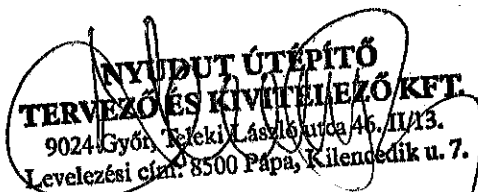 NYUDUT ÚTÉPÍTŐ
TERVEZŐ ÉS KIVITELEZŐ KFT.
9024 Győr, Teleki László utca 46. II/13.
Levelezési cím: 8500 Pápa, Kilencedik u. 7.